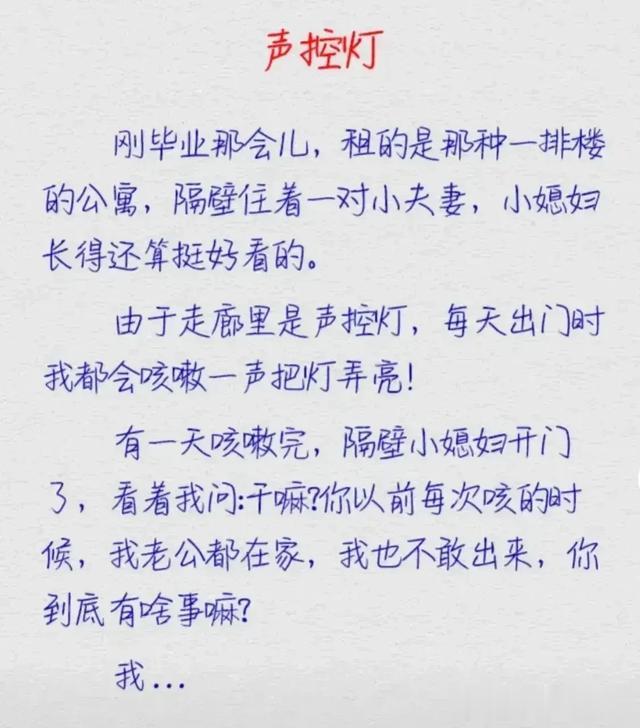 声控灯
刚毕业那会儿，租的是那种一排楼
的公寓，隔壁住着一对小夫妻，小媳妇
长得还算挺好看的。
由于走廊里是声控灯，每天出门时
我都会咳嗽一声把灯弄亮！
有一天咳嗽完，隔壁小媳妇开门
了，看着我问：干嘛？你以前每次咳的时
候，我老公都在家，我也不敢出来，你
到底有啥事嘛？
我...